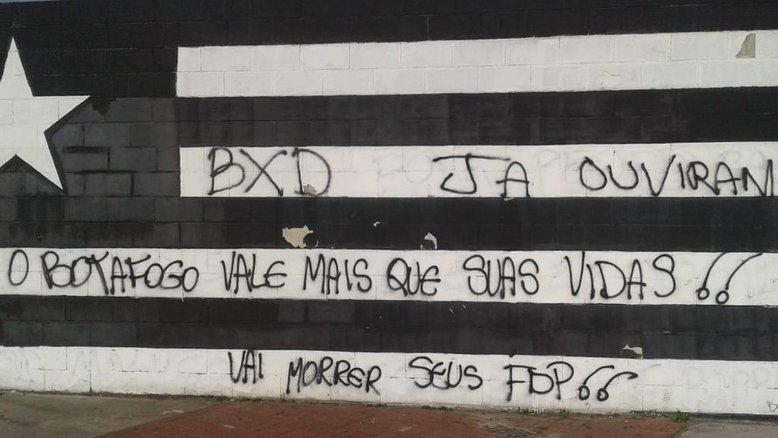 BXD JA OUVIRAM
O BOTAFOGO VALE MAIS QUE SUAS VIDAS!!
VAI MORRER SEUS FDP!!